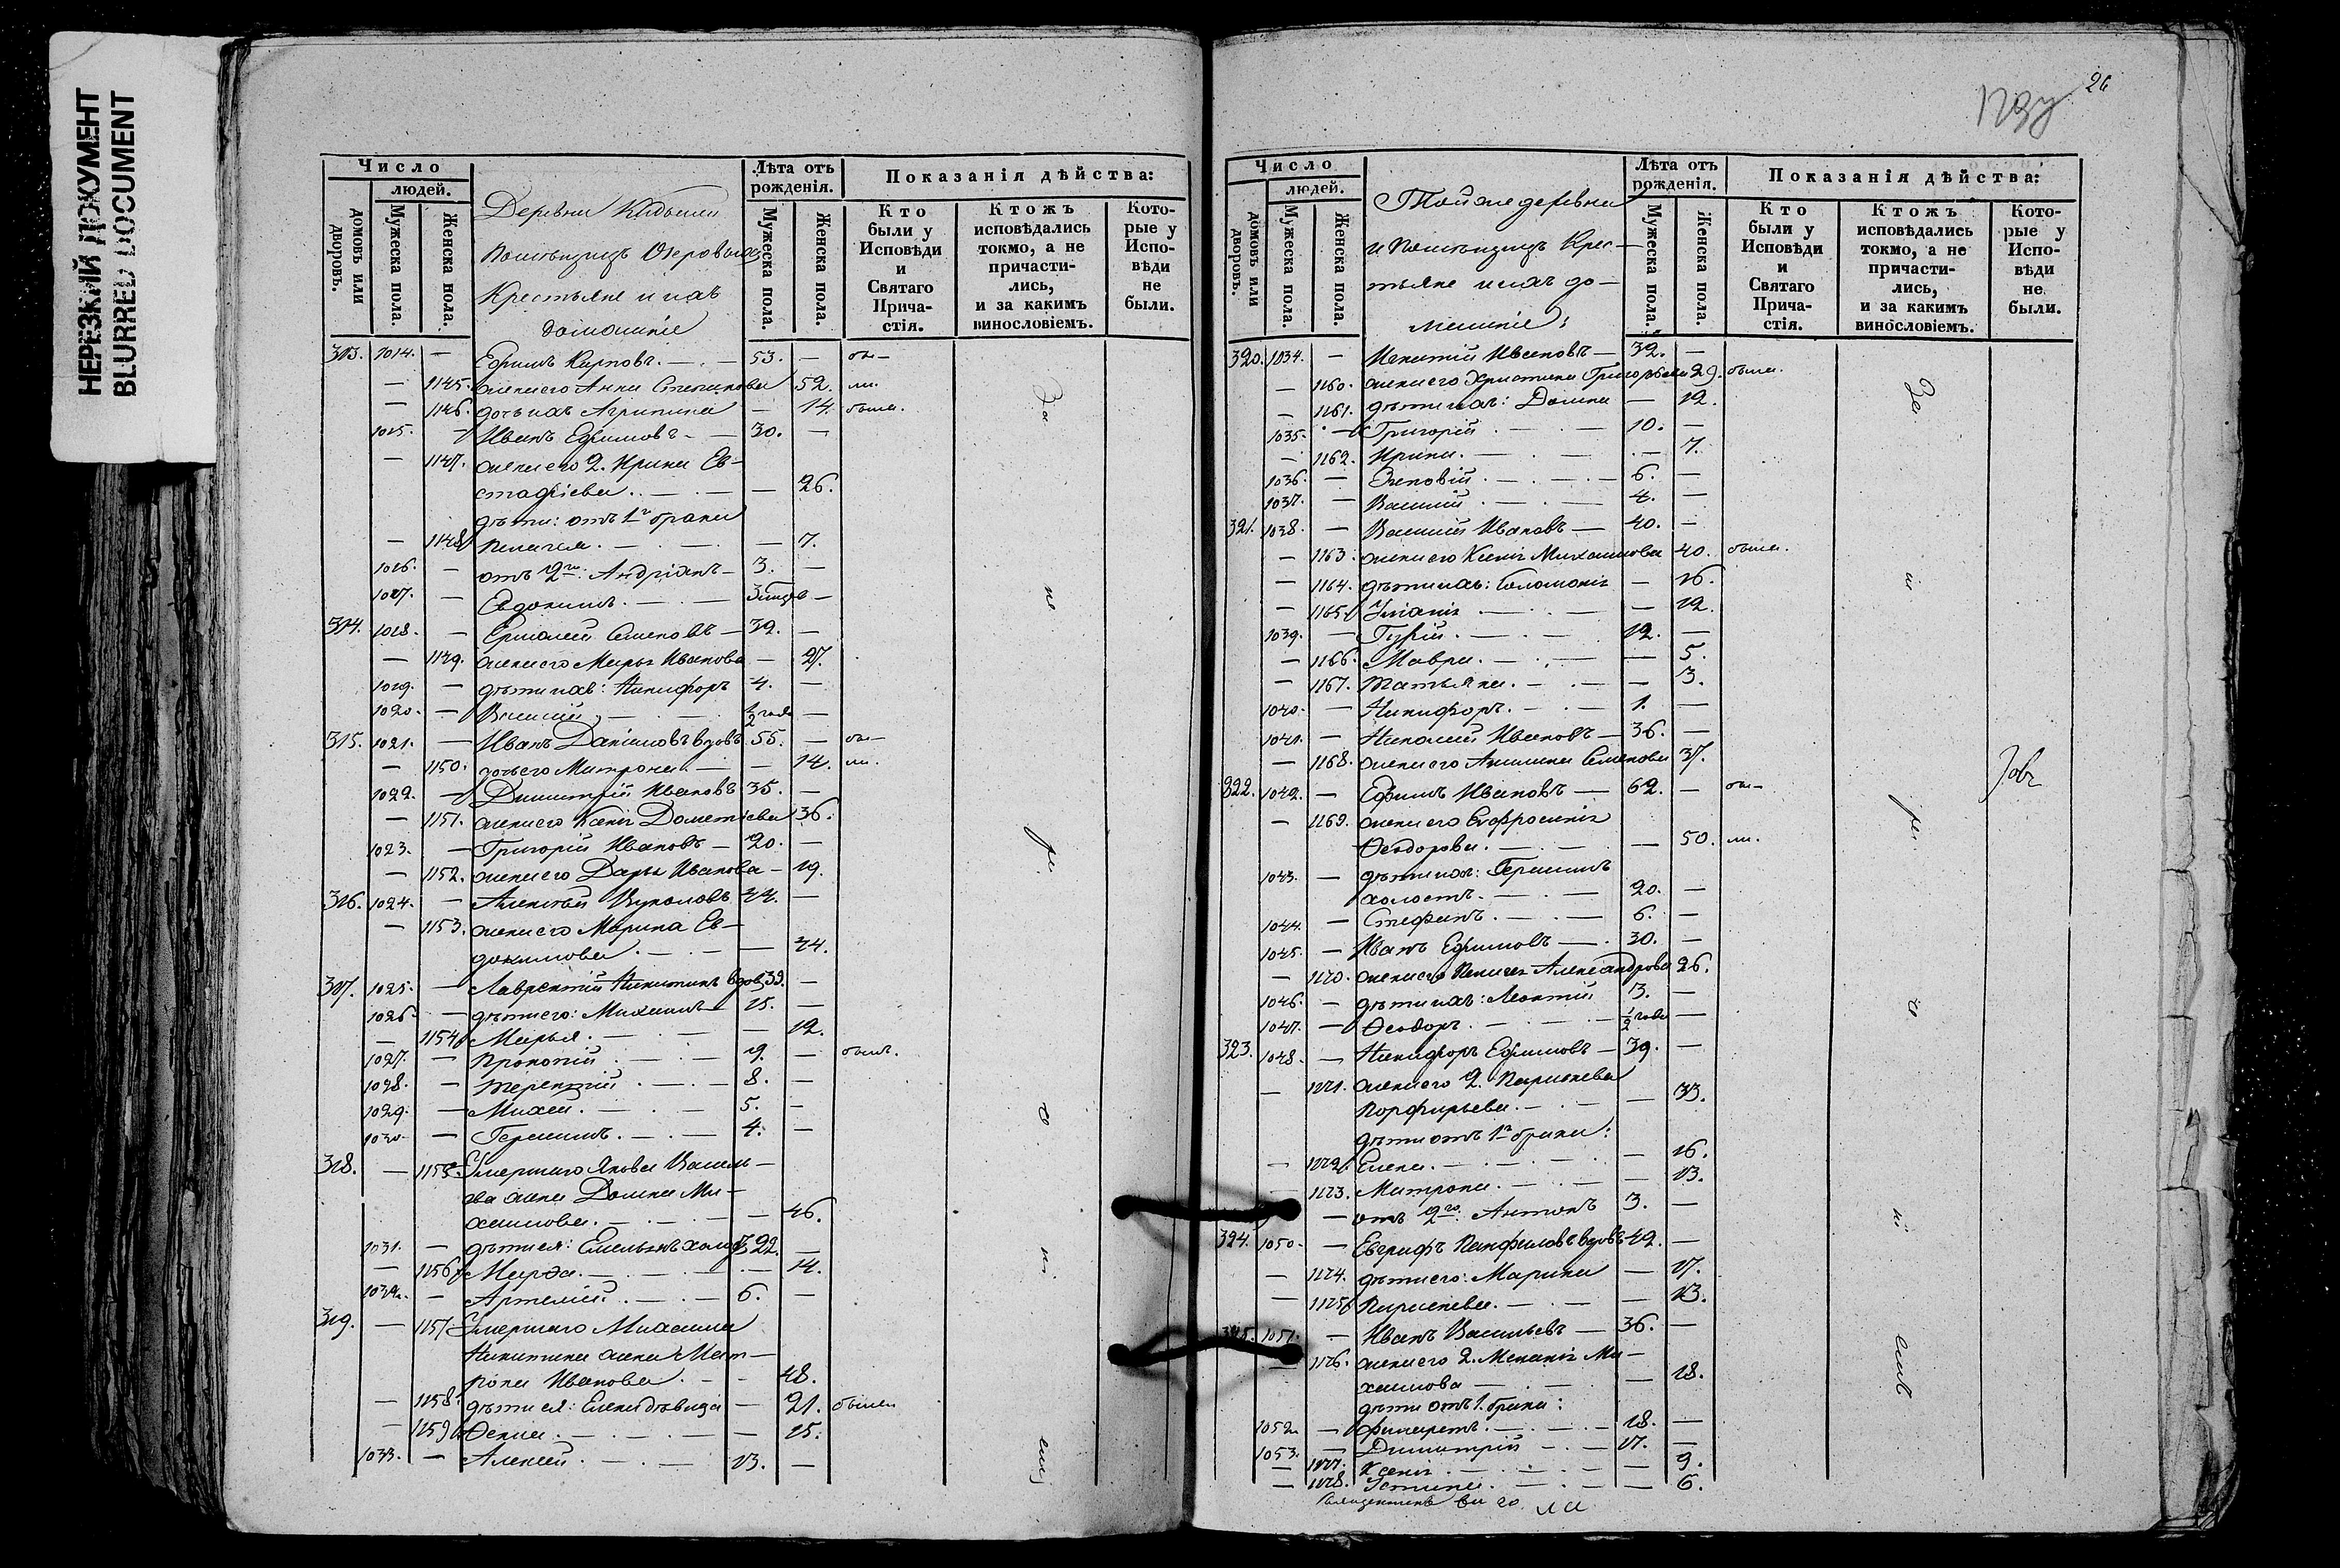 НЕРЕЗКИЙ ДОКУМЕНТ
BLURRED DOCUMENT
Число
людей.
домовъ или дворовъ.
Мужеска пола.
Женска пола.
Деревни
помѣщицъ Озеровыхъ
Крестьяне и ихъ
домашніе
Лѣта отъ рожденія.
Мужеска пола.
Женска пола.
Показанія дѣйства:
Кто были у Исповѣди и Святаго Прича-стія.
Ктожъ исповѣдались токмо, а не причасти-лись, и за какимъ винословіемъ.
Кото-рые у Испо-вѣди не были.
313. 1014. — Ефимъ Карповъ. — 53. — бы-
— 1145. жена его Анна Степанова 52. ли.
— 1146. дочь ихъ Агрипина — 14. была.
1015. — Иванъ Ефимовъ — 30. —
— 1147. жена его 2. Ирина Ев-
стафіева. — — 26.
дѣти: отъ 1го брака
— 1148. Пелагея. — — 7.
1016. — отъ 2го: Андріанъ — 3. —
1017. — Евдокимъ. — —
314. 1018. — Ермолай Семеновъ — 32. —
— 1149. жена его Марья Иванова — 27.
1019. — дѣти ихъ: Никифоръ 4. —
1020. — Василій. — 1/2 года —
315. 1021. — Иванъ Даніиловъ вдовъ 55. — бы-
— 1150. дочь его Матрона. — — 14. ли.
1022. — Димитрій Ивановъ 35. —
— 1151. жена его Ксенія Дометіева 36.
1023. — Григорій Ивановъ — 20. —
— 1152. жена его Дарья Иванова — 19.
316. 1024. — Алексѣй Вуколовъ 44. —
— 1153. жена его Марина Ев-
докимова. — — 44.
317. 1025. — Лаврентій Никитинъ вдовъ 39. —
1026. — дѣти его: Михаилъ 15. —
— 1154. Марья. — — 12.
1027. — Прокопій — 9. — былъ.
1028. — Терентій — 8. —
1029. — Михей. — 5. —
1030. — Герасимъ. — 4. —
318. — 1155. Умершаго Якова Василь-
ева жена Домна Ми-
хаилова. — — 46.
1031. — дѣти ея: Емельянъ холос. 22. —
— 1156. Марѳа. — — 14.
1032. — Артемій — 6. —
319. — 1157. Умершаго Максима
Никитина жена Мат-
рона Иванова — 48.
— 1158. дѣти ея: Елена дѣвица — 21. была
— 1159. Ѳекла. — — 15.
1033. — Алексѣй. — 13. —
За
не
ре
со
ні
емъ
26
Число
людей.
домовъ или дворовъ.
Мужеска пола.
Женска пола.
Той же деревни
и помѣщицъ Крес-
тьяне и ихъ до-
машніе:
Лѣта отъ рожденія.
Мужеска пола.
Женска пола.
Показанія дѣйства:
Кто были у Исповѣди и Святаго Прича-стія.
Ктожъ исповѣдались токмо, а не причасти-лись, и за какимъ винословіемъ.
Кото-рые у Испо-вѣди не были.
320. 1034. — Игнатій Ивановъ — 32. —
— 1160. жена его Христина Григорьева 29. была.
— 1161. дѣти ихъ: Домна — 12.
1035. — Григорій — 10. —
— 1162. Ирина. — — 7.
1036. — Зиновій — 6. —
1037. — Василій — 4. —
321. 1038. — Василій Ивановъ — 40. —
— 1163. жена его Ксенія Михаилова 40. была.
— 1164. дѣти ихъ: Соломонія — 16.
— 1165. Уліанія — — 12.
1039. — Гурій. — 12. —
— 1166. Мавра. — — 5.
— 1167. Татьяна. — — 3.
1040. — Никифоръ. — 1. —
1041. — Николай Ивановъ — 36. —
— 1168. жена его Акилина Семенова 37.
322. 1042. — Ефимъ Ивановъ — 62. — бы-
— 1169. жена его Евфросинія
Ѳеодорова. — — 50. ли.
1043. — дѣти ихъ: Герасимъ
холостъ. — 20. —
1044. — Стефанъ. — 6. —
1045. — Иванъ Ефимовъ — 30. —
— 1170. жена его Пелагея Александрова 26.
1046. — дѣти ихъ: Леонтій 3. —
1047. — Ѳеодоръ. — 1/2 года —
323. 1048. — Никифоръ Ефимовъ — 39. —
— 1171. жена его 2. Параскева
Порфирьева. — — 33.
дѣти отъ 1го брака:
— 1172. Елена. — — 16.
— 1173. Матрона. — — 13.
— отъ 2го. Антонъ 3. —
324. 1050. — Евграфъ Панфиловъ вдовъ 42. —
— 1174. дѣти его: Марина — 17.
— 1175. Параскева. — — 13.
325. 1051. — Иванъ Васильевъ — 36. —
— 1176. жена его 2. Меланія Ми-
хаилова — — 18.
дѣти отъ 1. брака:
1052. — Филаретъ. — 18. —
1053. — Димитрій — 17. —
— 1177. Ксенія. — — 9.
— 1178. Устинья. — — 6.
Священникъ
За
не
ре
со
ні
емъ